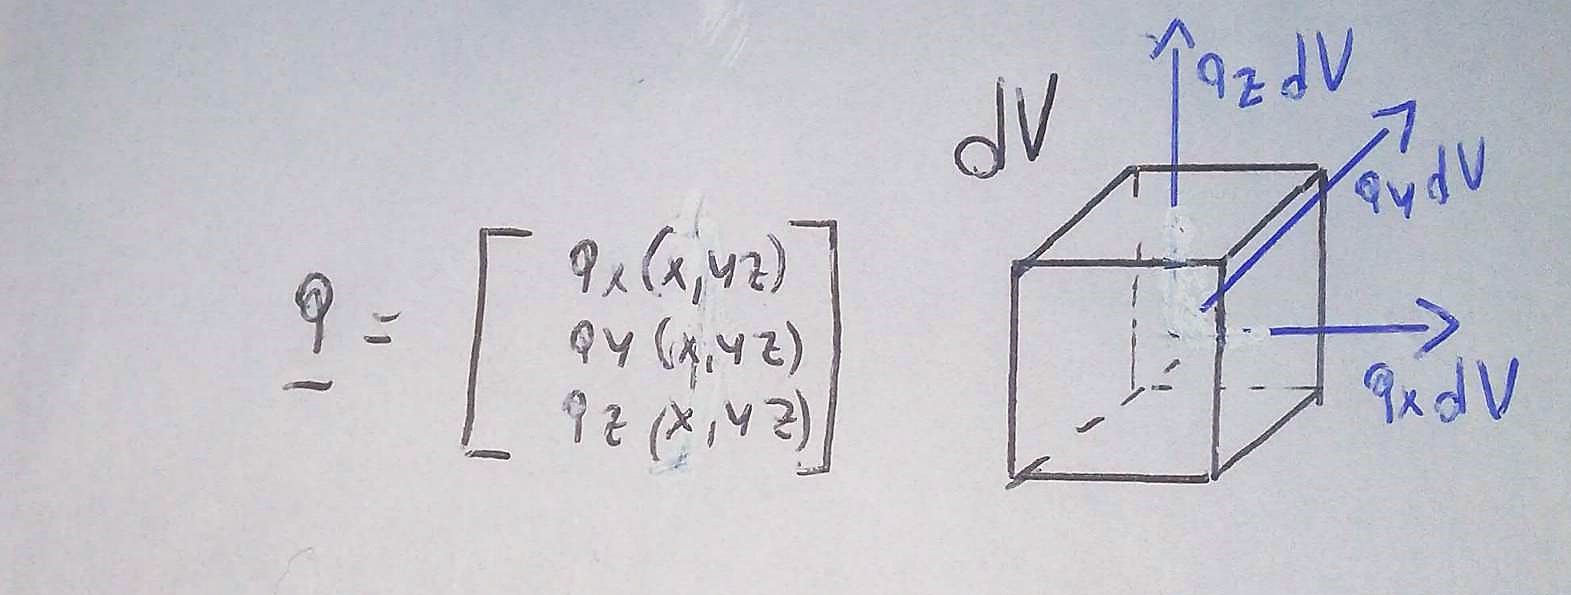 q = [ qx(x,yz)
qy(x,yz)
qz(x,yz) ]
dV
qz dV
qy dV
qx dV